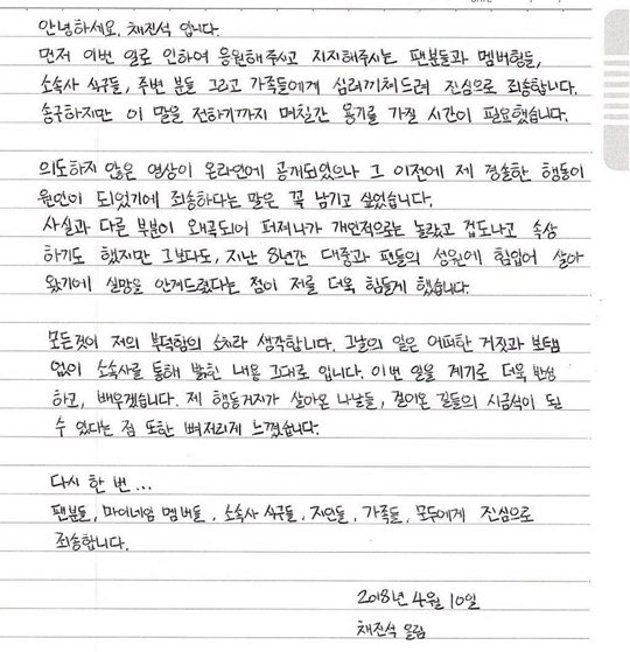 안녕하세요, 채진석 입니다.
먼저 이번 일로 인하여 응원해주시고 지지해주시는 팬분들과 멤버형들,
소속사 식구들, 주변 분들 그리고 가족들에게 심려끼쳐드려 진심으로 죄송합니다.
송구하지만 이 말을 전하기까지 며칠간 용기를 가질 시간이 필요했습니다.
의도하지 않은 영상이 온라인에 공개되었으나 그 이전에 제 경솔한 행동이
원인이 되었기에 죄송하다는 말은 꼭 남기고 싶었습니다.
사실과 다른 부분이 왜곡되어 퍼져나가 개인적으로는 놀랐고 겁도나고 속상
하기도 했지만 그보다도, 지난 8년간 대중과 팬들의 성원에 힘입어 살아
왔기에 실망을 안겨드렸다는 점이 저를 더욱 힘들게 했습니다.
모든것이 저의 부덕함의 소치라 생각합니다. 그날의 일은 어떠한 거짓과 보탬
없이 소속사를 통해 밝힌 내용 그대로 입니다. 이번 일을 계기로 더욱 반성
하고, 배우겠습니다. 제 행동거지가 살아온 나날들, 걸어온 길들의 시금석이 된
수 있다는 점 또한 뼈저리게 느꼈습니다.
다시 한 번...
팬분들, 마이네임 멤버들, 소속사 식구들, 지인들, 가족들, 모두에게 진심으로
죄송합니다.
2018년 4월 10일
채진석 올림